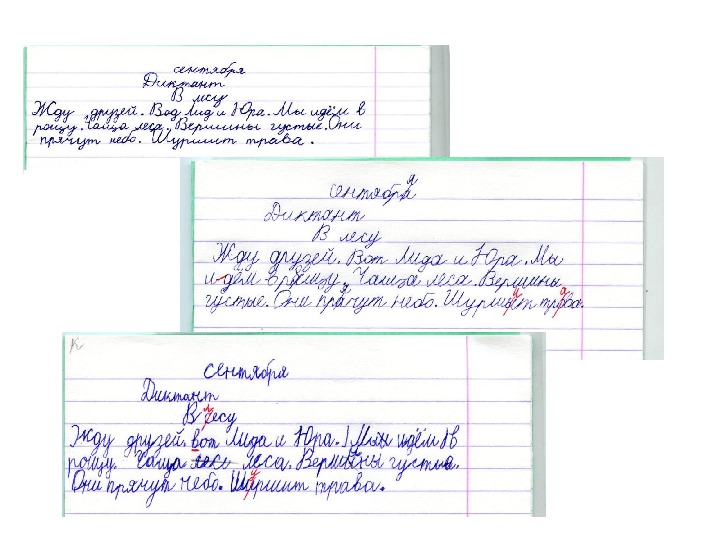 сентября
Диктант
В лесу
Жду друзей. Вод Лид и Юра. Мы идём в
рощу. Чаща леса. Вершины густые. Они
прячут небо. Шуршит трава.
сентября
я
Диктант
В лесу
Жду друзей. Вот Лида и Юра. Мы
идём в рощу. Чаща леса. Вершины
густые. Они прячут небо. Шуршит трава.
К
сентября
Диктант
В лесу
Жду друзей. вот Лида и Юра. Мы идём в
рощу. Чаща леса. Вершины густые.
Они прячут небо. Шуршит трава.